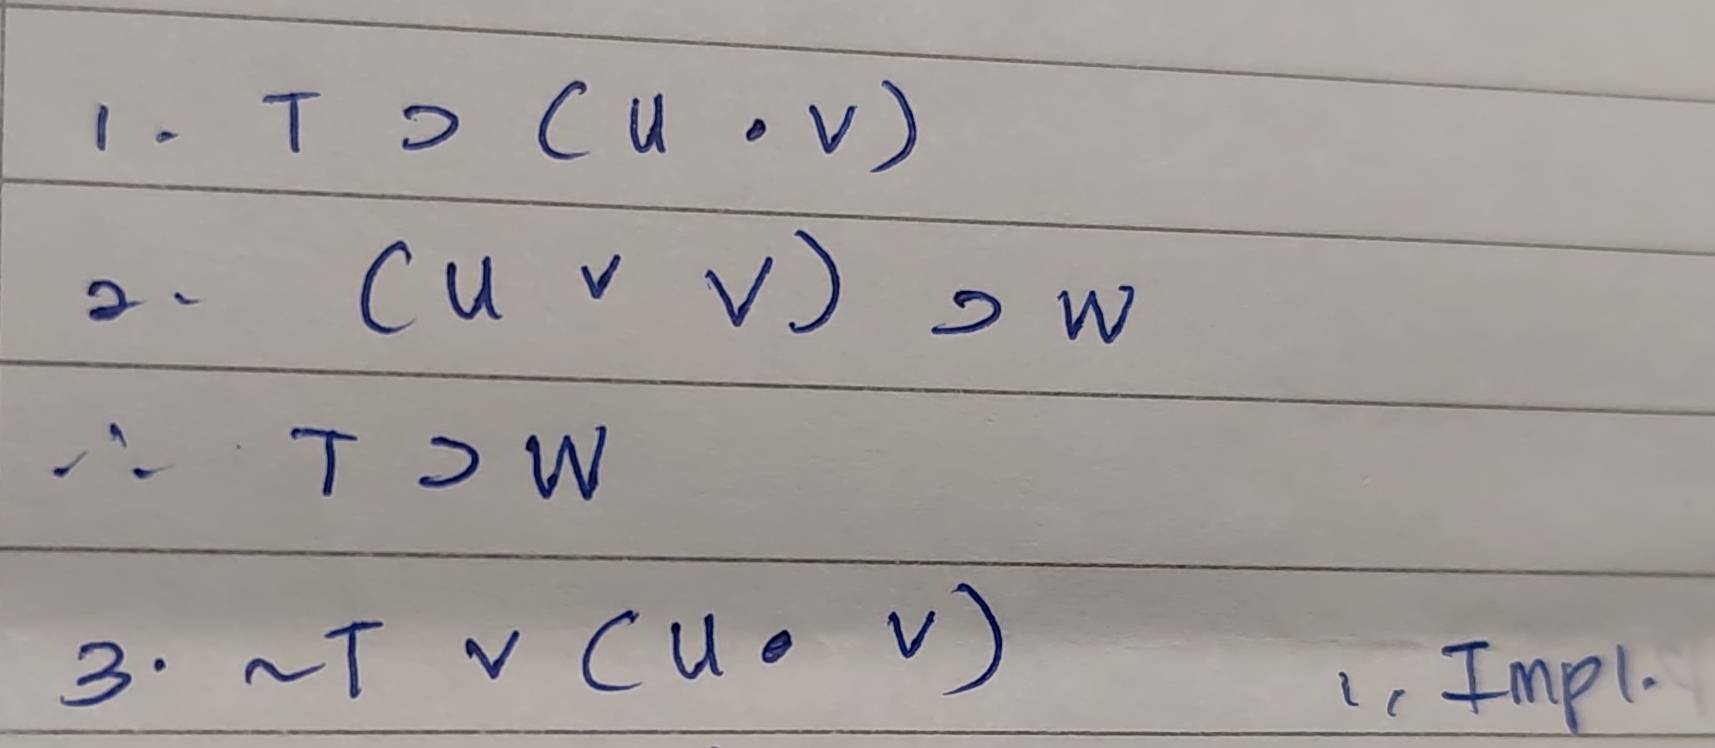 1. T ⊃ (U • V)
2. (U v V) ⊃ W
∴ T ⊃ W
3. ~T v (U • V) 1, Impl.